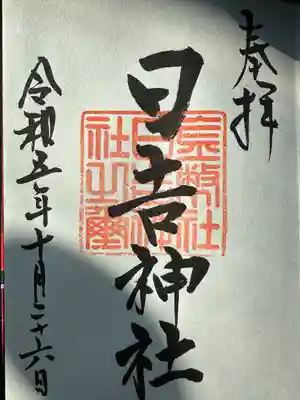 奉拝
日吉神社
令和五年十月二十六日
社之璽